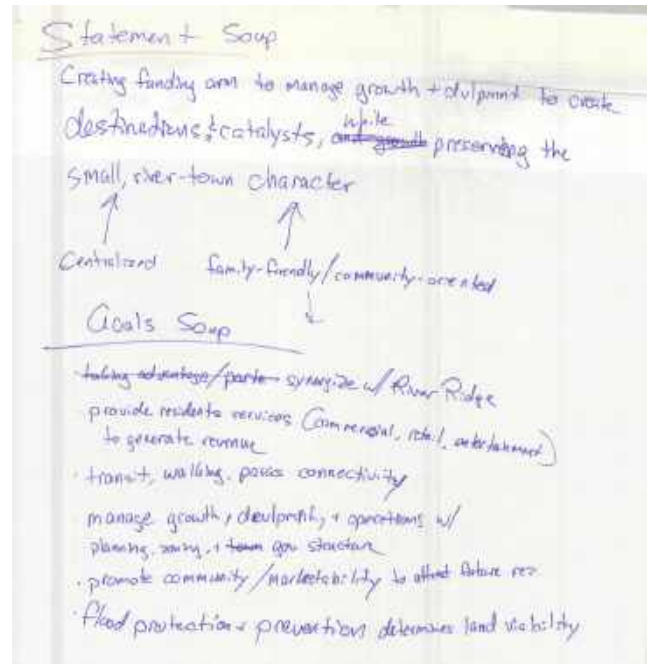 Statement Soup
Creating funding arm to manage growth + dvlpmnt to create
destinations & catalysts, and growth while preserving the
small, river-town character
Centralized family-friendly/community-oriented
Goals Soup
taking advantage/partn synergize w/ River Ridge
provide residents services (commercial, retail, entertainment)
to generate revenue
· transit, walking, parks connectivity
manage growth, devlpmnt, + operations w/
planning, zoning, + town gov structure
· promote community/marketability to attract future res.
· flood protection + prevention determines land viability